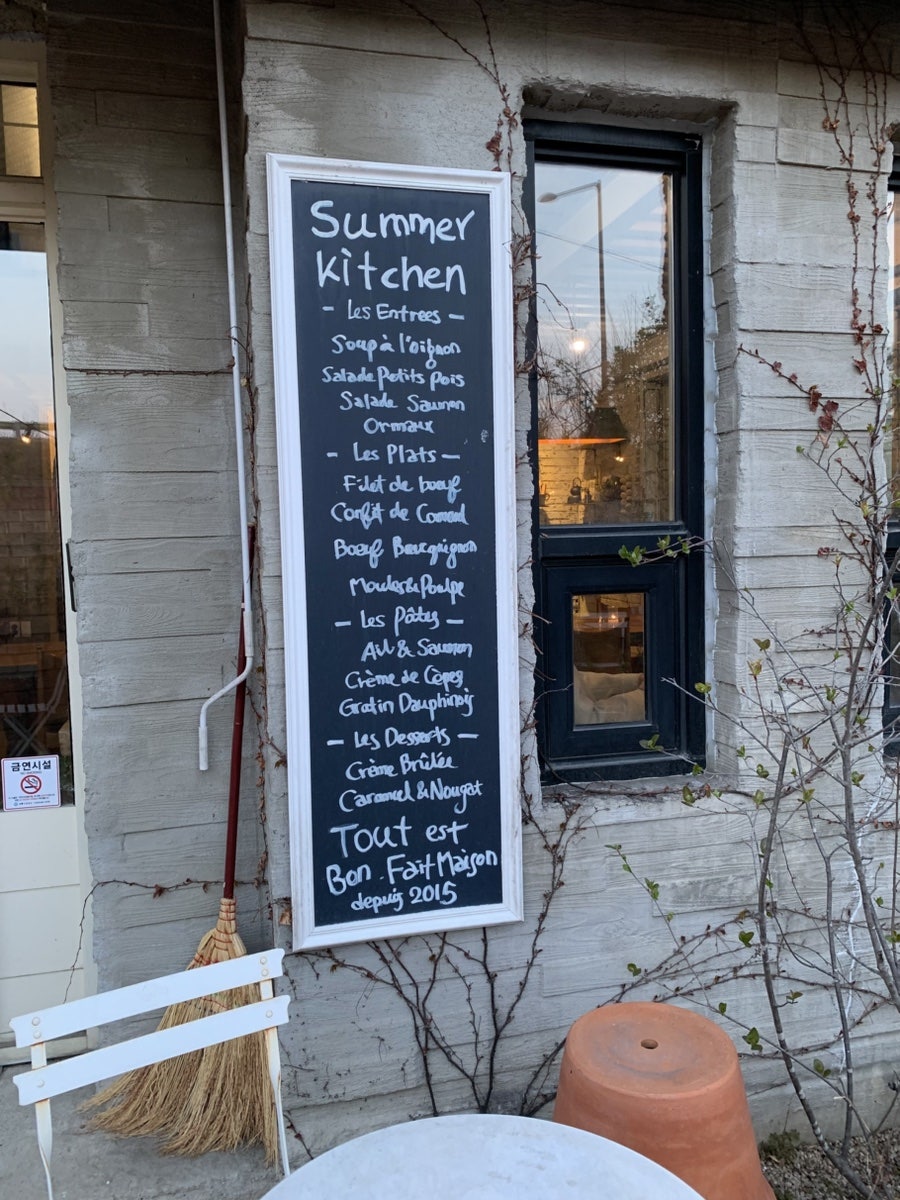 Summer
kitchen
- Les Entrees -
Soup à l'oignon
Salade Petits Pois
Salade Saumon
Ormaux
- Les Plats -
Filet de bœuf
Confit de Canard
Bœuf Bourguignon
Moules & Poulpe
- Les Pâtes -
Ail & Saumon
Crème de Cèpes
Gratin Dauphinois
- Les Desserts -
Crème Brûlée
Caramel & Nougat
Tout est
Bon . Fait Maison
depuis 2015
금연시설